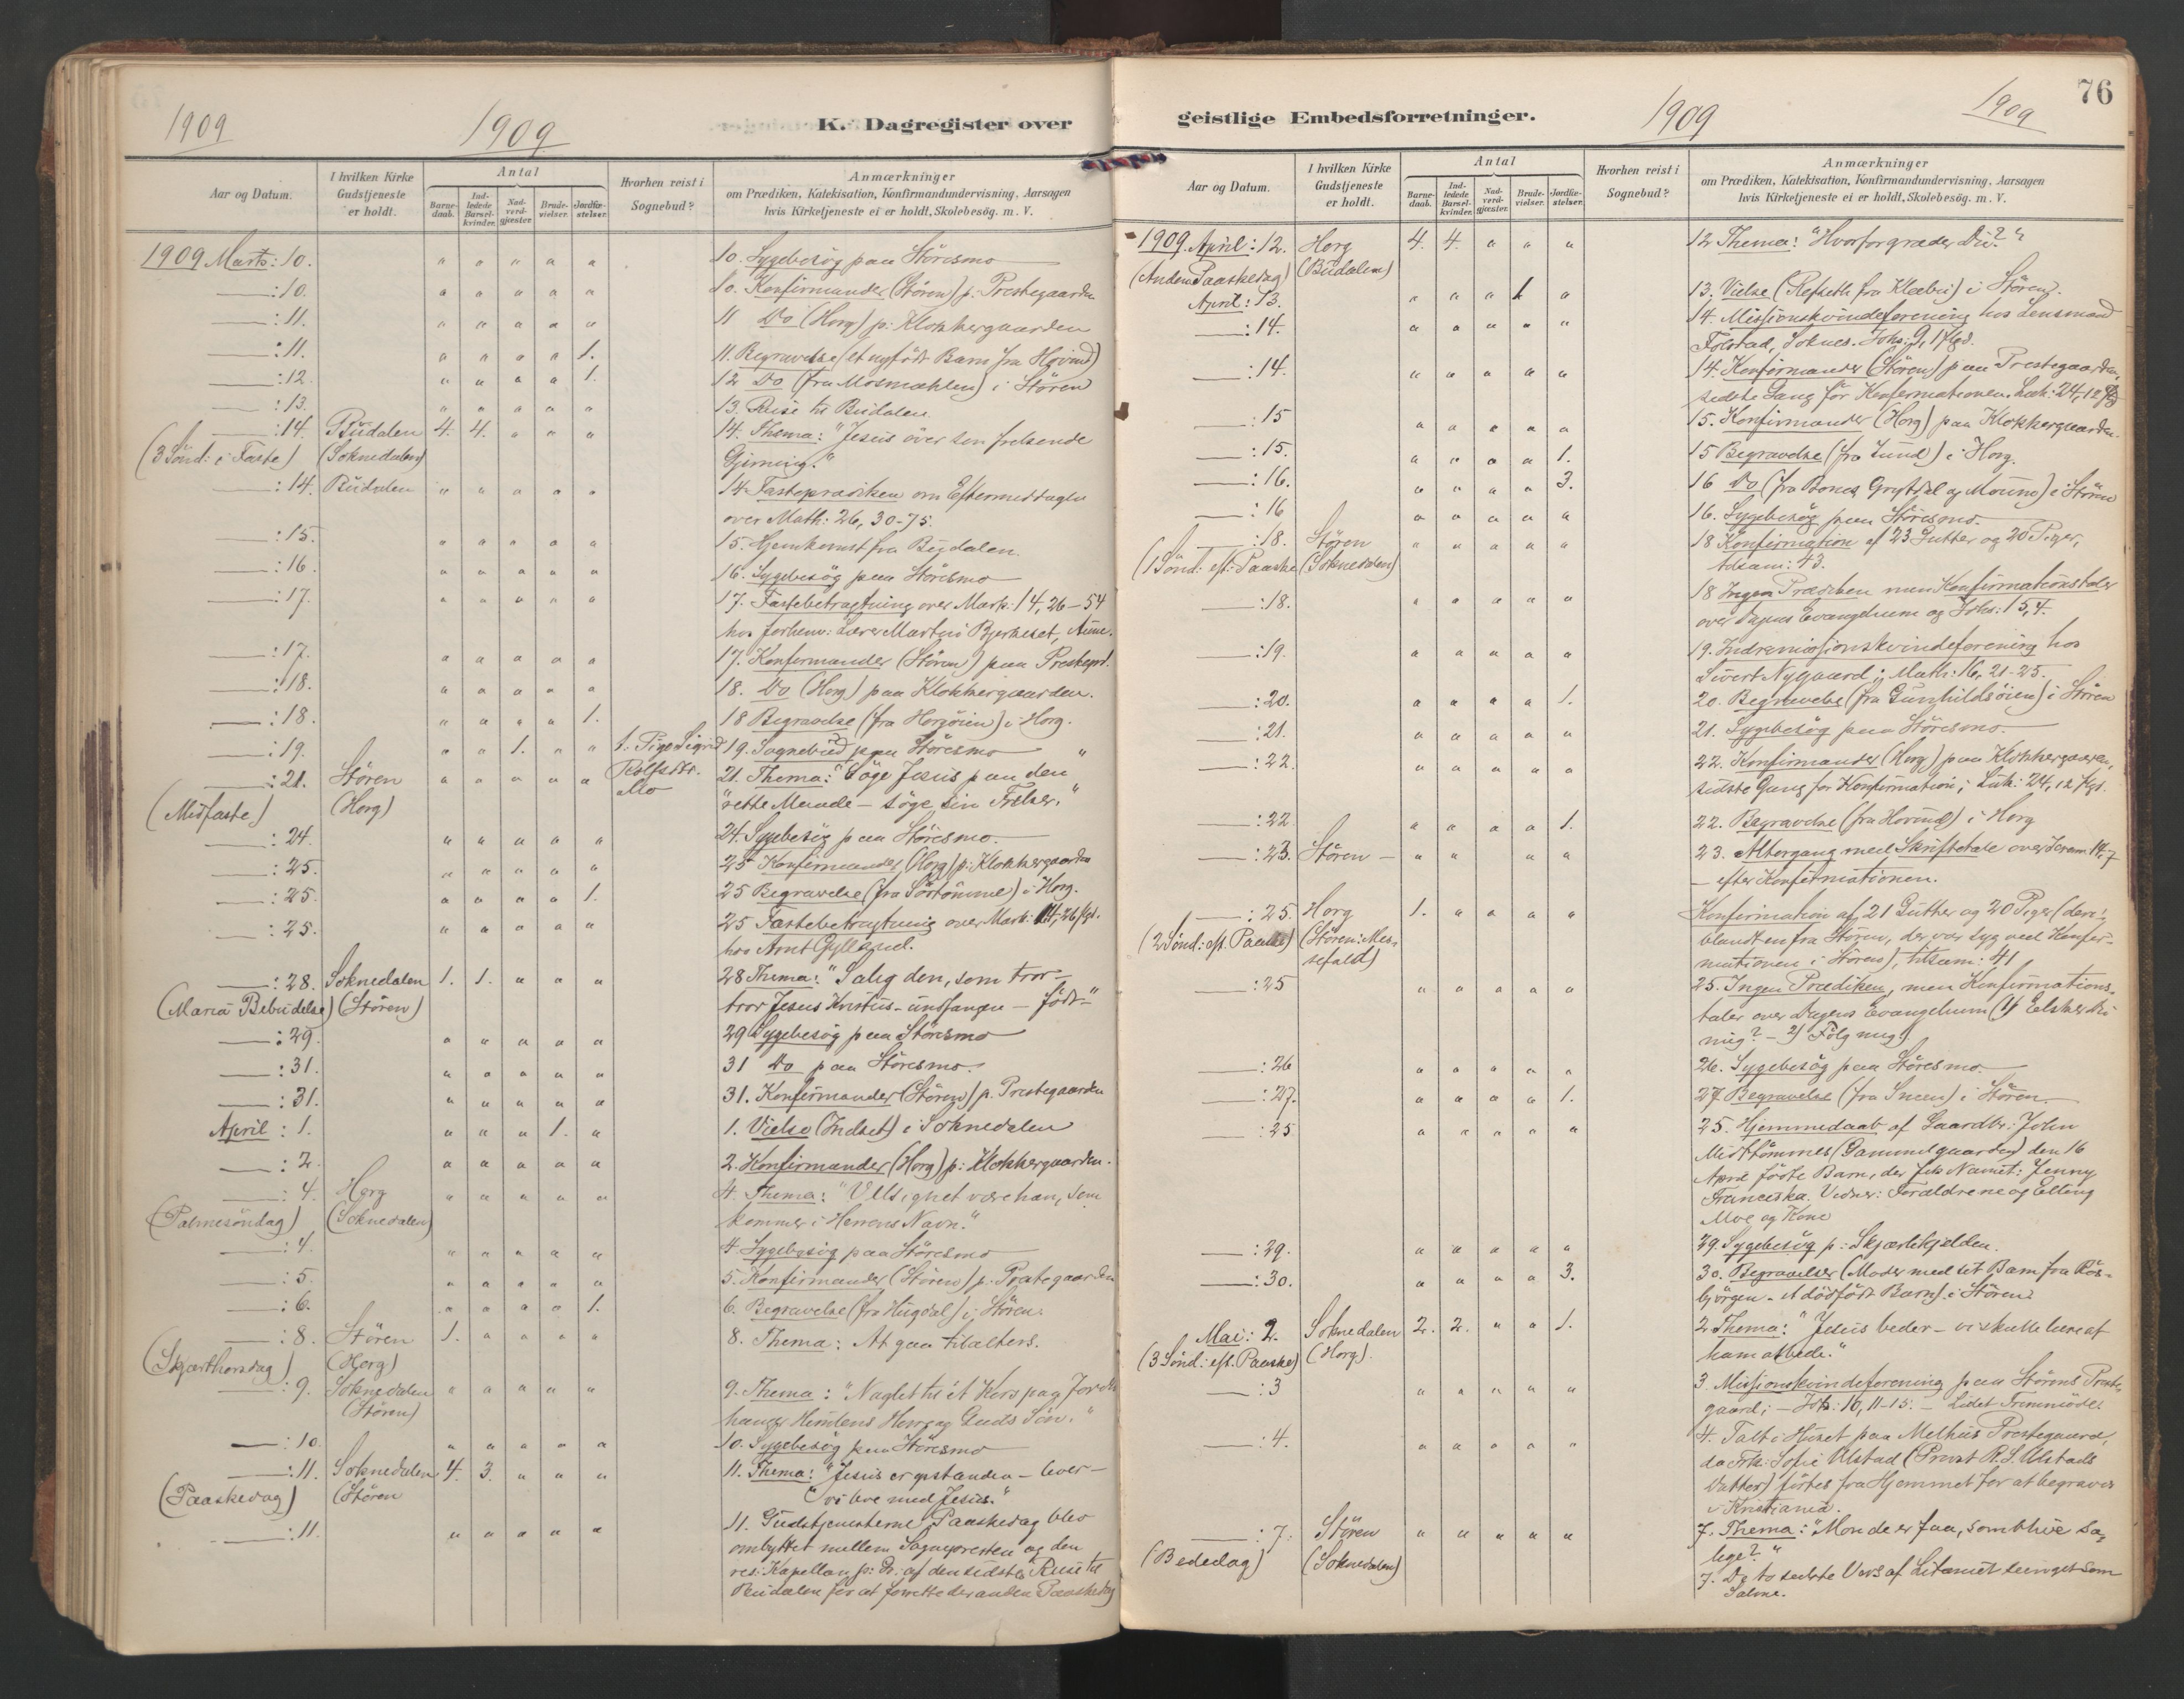 76
1909
1909
K. Dagregister over
geistlige Embedsforretninger.
1909
1909
Aar og Datum.
I hvilken Kirke
Gudstjeneste
er holdt.
Antal
Barne-
daab.
Ind-
ledede
Barsel-
kvinder.
Nad-
verd-
gjæster.
Brude-
vielser.
Jordfæ-
stelser.
Hvorhen reist i
Sognebud?
Anmærkninger
om Prædiken, Katekisation, Konfirmandundervisning, Aarsagen
hvis Kirketjeneste ei er holdt, Skolebesög. m. V.
1909 Marts: 10. " " " " " 10. Sygebesög paa Störesmo
: 10. " " " " " 10. Konfirmander (Stören) p: Prestegaarden
: 11. " " " " " 11 Do (Horg) p: Klokkergaarden
: 11. " " " " 1. 11. Begravelse (et nyfödt Barn fra Hovind)
: 12. " " " " 1. 12 Do (fra Mosmæhlen) i Stören
: 13. " " " " " 13. Reise til Budalen
: 14. Budalen 4. 4. " " " 14. Thema: "Jesus över sen frelsende
(3 Sönd: i Faste) (Soknedalen) Gjerning."
: 14. Budalen " " " " " 14 Fasteprædiken om Eftermiddagen
over Math: 26, 30-75.
: 15. " " " " " 15. Hjemkomst fra Budalen.
: 16. " " " " " 16. Sygebesög paa Störesmo
: 17. " " " " " 17. Fastebetragtning over Mark: 14, 26-54
hos forhenv: Lærer Martin Bjerkeset,
: 17. " " " " " 17. Konfirmander (Stören) paa Prestegrd.
: 18. " " " " " 18. Do (Horg) paa Klokkergaarden.
: 18. " " " " 1. 18 Begravelse (fra Horgöien) i Horg.
: 19. " " 1. " " 1. Pige Sigrid 19. Sognebud paa Störesmo "
: 21. Stören " " " " " Rolfsdtr. 21. Thema: "Söge Jesus paa den
Mo "rette Maade - söge sin Frelser."
(Midfaste) (Horg)
: 24. " " " " " 24. Sygebesög paa Störesmo.
: 25. " " " " " 25 Konfirmander (Horg) p: Klokkergaarden
: 25. " " " " 1. 25 Begravelse (fra Sörtömme) i Horg.
: 25. " " " " " 25 Fastebetragtning over Mark: 14, 26 flgd.
hos Arnt Gylland.
: 28. Soknedalen 1. 1. " " " 28 Thema: "Salig den, som tror
(Mariä Bebudelse) (Stören) tror Jesus Kristus - undfangen - födt-"
: 29. " " " " " 29 Sygebesög paa Störesmo
: 31. " " " " " 31 Do paa Störesmo.
: 31. " " " " " 31. Konfirmander (Stören) p. Prestegaarden
April : 1. " " " 1. " 1. Vielse (Indset) i Soknedalen
: 2. " " " " " 2. Konfirmander (Horg) p: Klokkergaarden.
: 4. Horg " " " " " 4. Thema: "Velsignet være han, som
(Palmesöndag) (Soknedalen) kommer i Herrens Navn."
: 4. " " " " " 4. Sygebesög paa Störesmo
: 5. " " " " " 5. Konfirmander (Stören) p: Prestegaarden
: 6. " " " " 1. 6. Begravelse (fra Hugdal) i Stören.
: 8. Stören 1. " " " " 8. Thema: At gaa tilalters.
(Skjærthorsdag) (Horg)
: 9. Soknedalen " " " " " 9. Thema: "Naglet til et Kors paa Jorden
(Stören) hænger Himlens Herre og Guds Sön."
: 10. " " " " " 10. Sygebesög paa Störesmo
: 11. Soknedalen 4. 3. " " " 11. Thema: "Jesus er opstanden - lever -
(Paaskedag) (Stören "vi leve med Jesus."
: 11. " " " " " 11. Gudstjenesterne Paaskedag blev
ombyttet mellem Sogneprestten og den
res: Kapellan p: Gr. af den sidstes Reise til
Budalen for at forrette der anden Paaskedag
Aar og Datum.
I hvilken Kirke
Gudstjeneste
er holdt.
Antal
Barne-
daab.
Ind-
ledede
Barsel-
kvinder.
Nad-
verd-
gjæster.
Brude-
vielser.
Jordfæ-
stelser.
Hvorhen reist i
Sognebud?
Anmærkninger
om Prædiken, Katekisation, Konfirmandundervisning, Aarsagen
hvis Kirketjeneste ei er holdt, Skolebesög. m. V.
1909. April: 12. Horg 4. 4. " " " 12 Thema: "Hvorfor græder Du?"
(Anden Paaskedag) (Budalen)
April: 13. " " " 1 " 13. Vielse (Refseth fra Klæbu) i Stören.
: 14. " " " " " 14. Missionskvindeforening hos Lensmand
Folstad, Soknes. Johs: 9, 1 flgd.
: 14. " " " " " 14. Konfirmander (Stören) paa Prestegaarden,
sidste Gang för Konfirmationen. Luk: 24, 12 flgd
: 15 " " " " " 15. Konfirmander (Horg) paa Klokkergaarden.
: 15. " " " " 1. 15 Begravelse (fra Lund) i Horg.
: 16. " " " " 3. 16 Do (fra Bones, Grytdal og Mouno) i Stören
: 16 " " " " " 16. Sygebesög paa Störesmo.
: 18. Stören " " " " " 18 Konfirmation af 23 Gutter og 20 Piger,
(1 Sönd: eft: Paaske (Soknedalen) tilsam: 43.
: 18. " " " " " 18 Ingen Prædiken men Konfirmationstaler
over Dagens Evangelium og Johs: 15, 4.
: 19. " " " " " 19. Indremissionskvindeforening hos
Sivert Nygaard; Math: 16, 21-25.
: 20. " " " " 1. 20. Begravelse (fra Gunhildsöien) i Stören
: 21. " " " " " 21. Sygebesög paa Störesmo.
: 22. " " " " " 22. Konfirmander (Horg) paa Klokkergaarden,
sidste Gang for Konfirmation; Luk: 24, 12 flgd.
: 22. " " " " 1. 22. Begravelse (fra Hovind) i Horg
: 23. Stören - " " " " 23. Altergang med Skriftetale over Jerem: 14, 7
- efter Konfirmationen.
: 25. Horg 1. " " " " Konfirmation af 21 Gutter og 20 Piger (deri-
(2 Sönd: eft. Paaske) (Stören: Mes- blandt en fra Stören, der var syg ved Konfir-
sefald) mationen i Stören), tilsam: 41
: 25 " " " " " 25. Ingen Prædiken, men Konfirmations-
taler over Dagens Evangelium (1) Elsker Du
mig? - 2) Fölg mig!
: 26 " " " " " 26. Sygebesög paa Störesmo.
: 27. " " " " 1. 27. Begravelse (fra Sneen) i Stören.
: 25 " " " " " 25. Hjemmedaab af Gaardbr: John
Midttömmes (Gammelgaarden) den 16
April födte Barn, der fik Navnet: Jenny
Franciska. Vidner: Forældrene og Elling
Moe og Kone
: 29. " " " " " 29. Sygebesög p: Skjærlikjelden.
: 30. " " " " 3. 30. Begravelser (Moder med sit Barn fra Rös-
björgen. et dödfödt Barn) i Stören.
Mai: 2. Soknedalen 2. 2. " " 1. 2 Thema: "Jesus beder - vi skulle lære af
(3 Sönd: eft. Paaske) (Horg). ham at bede."
: 3 " " " " " 3. Missionskvindeforening paa Störens Preste-
gaard; - Joh: 16, 11-15. - Lidet Fremmöde.
: 4. " " " " " 4. Talt i Huset paa Melhus Prestegaard,
da Frk: Sofie Ulstad (Provst R. S. Ulstads
Datter) förtes fra Hjemmet for at begraves
i Kristiania.
: 7. Stören " " " " " 7. Thema: "Mon de er faa, som blive sa-
(Bededag) (Soknedalen) lige?"
7. De to sidste Vers af Litaniet sunget som
Salme.